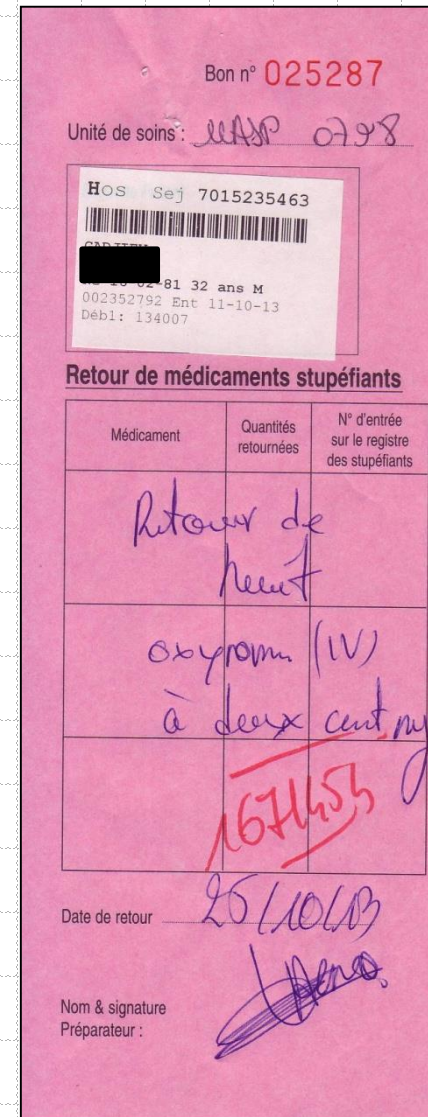 Bon n° 025287
Unité de soins : UASP 0798
Hos Sej 7015235463
-81 32 ans M
002352792 Ent 11-10-13
Débl: 134007
Retour de médicaments stupéfiants
Médicament
Quantités retournées
N° d'entrée sur le registre des stupéfiants
Retour de
huit
(IV)
à deux cent mg
Date de retour 25/10/13
Nom & signature
Préparateur :